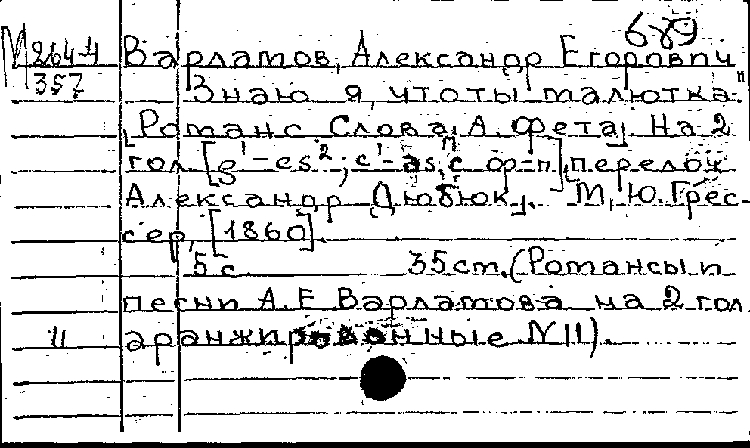 689
М 264-4
357
Варламов, Александр Егорович
"Знаю я, что ты малютка".
[Романс. Слова] А. Фета]. На 2
гол. [g¹-es²; c¹-as¹, с ф-п], перелож.
Александр Дюбюк]. М., Ю. Грес-
сер, [1860].
5 с 35 cm. (Романсы и
песни А. Е Варламова на 2 гол.
11 аранжированные. N 11).